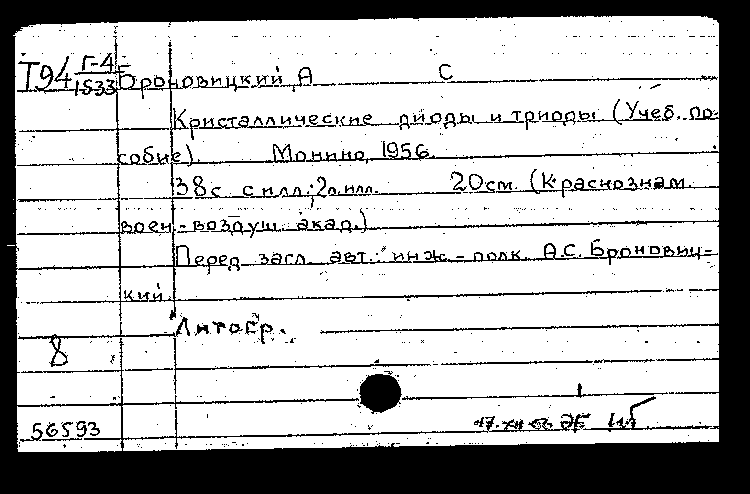 Т94 Г-4
1533 Броновицкий, А С
Кристаллические диоды и триоды (Учеб. по-
собие). Монино, 1956.
38с с илл.; 2л.илл. 20см. (Краснознам.
воен.-воздуш. акад.)
Перед загл. авт.: инж.-полк. А.С. Бронович-
кий.
Литогр.
8
56593